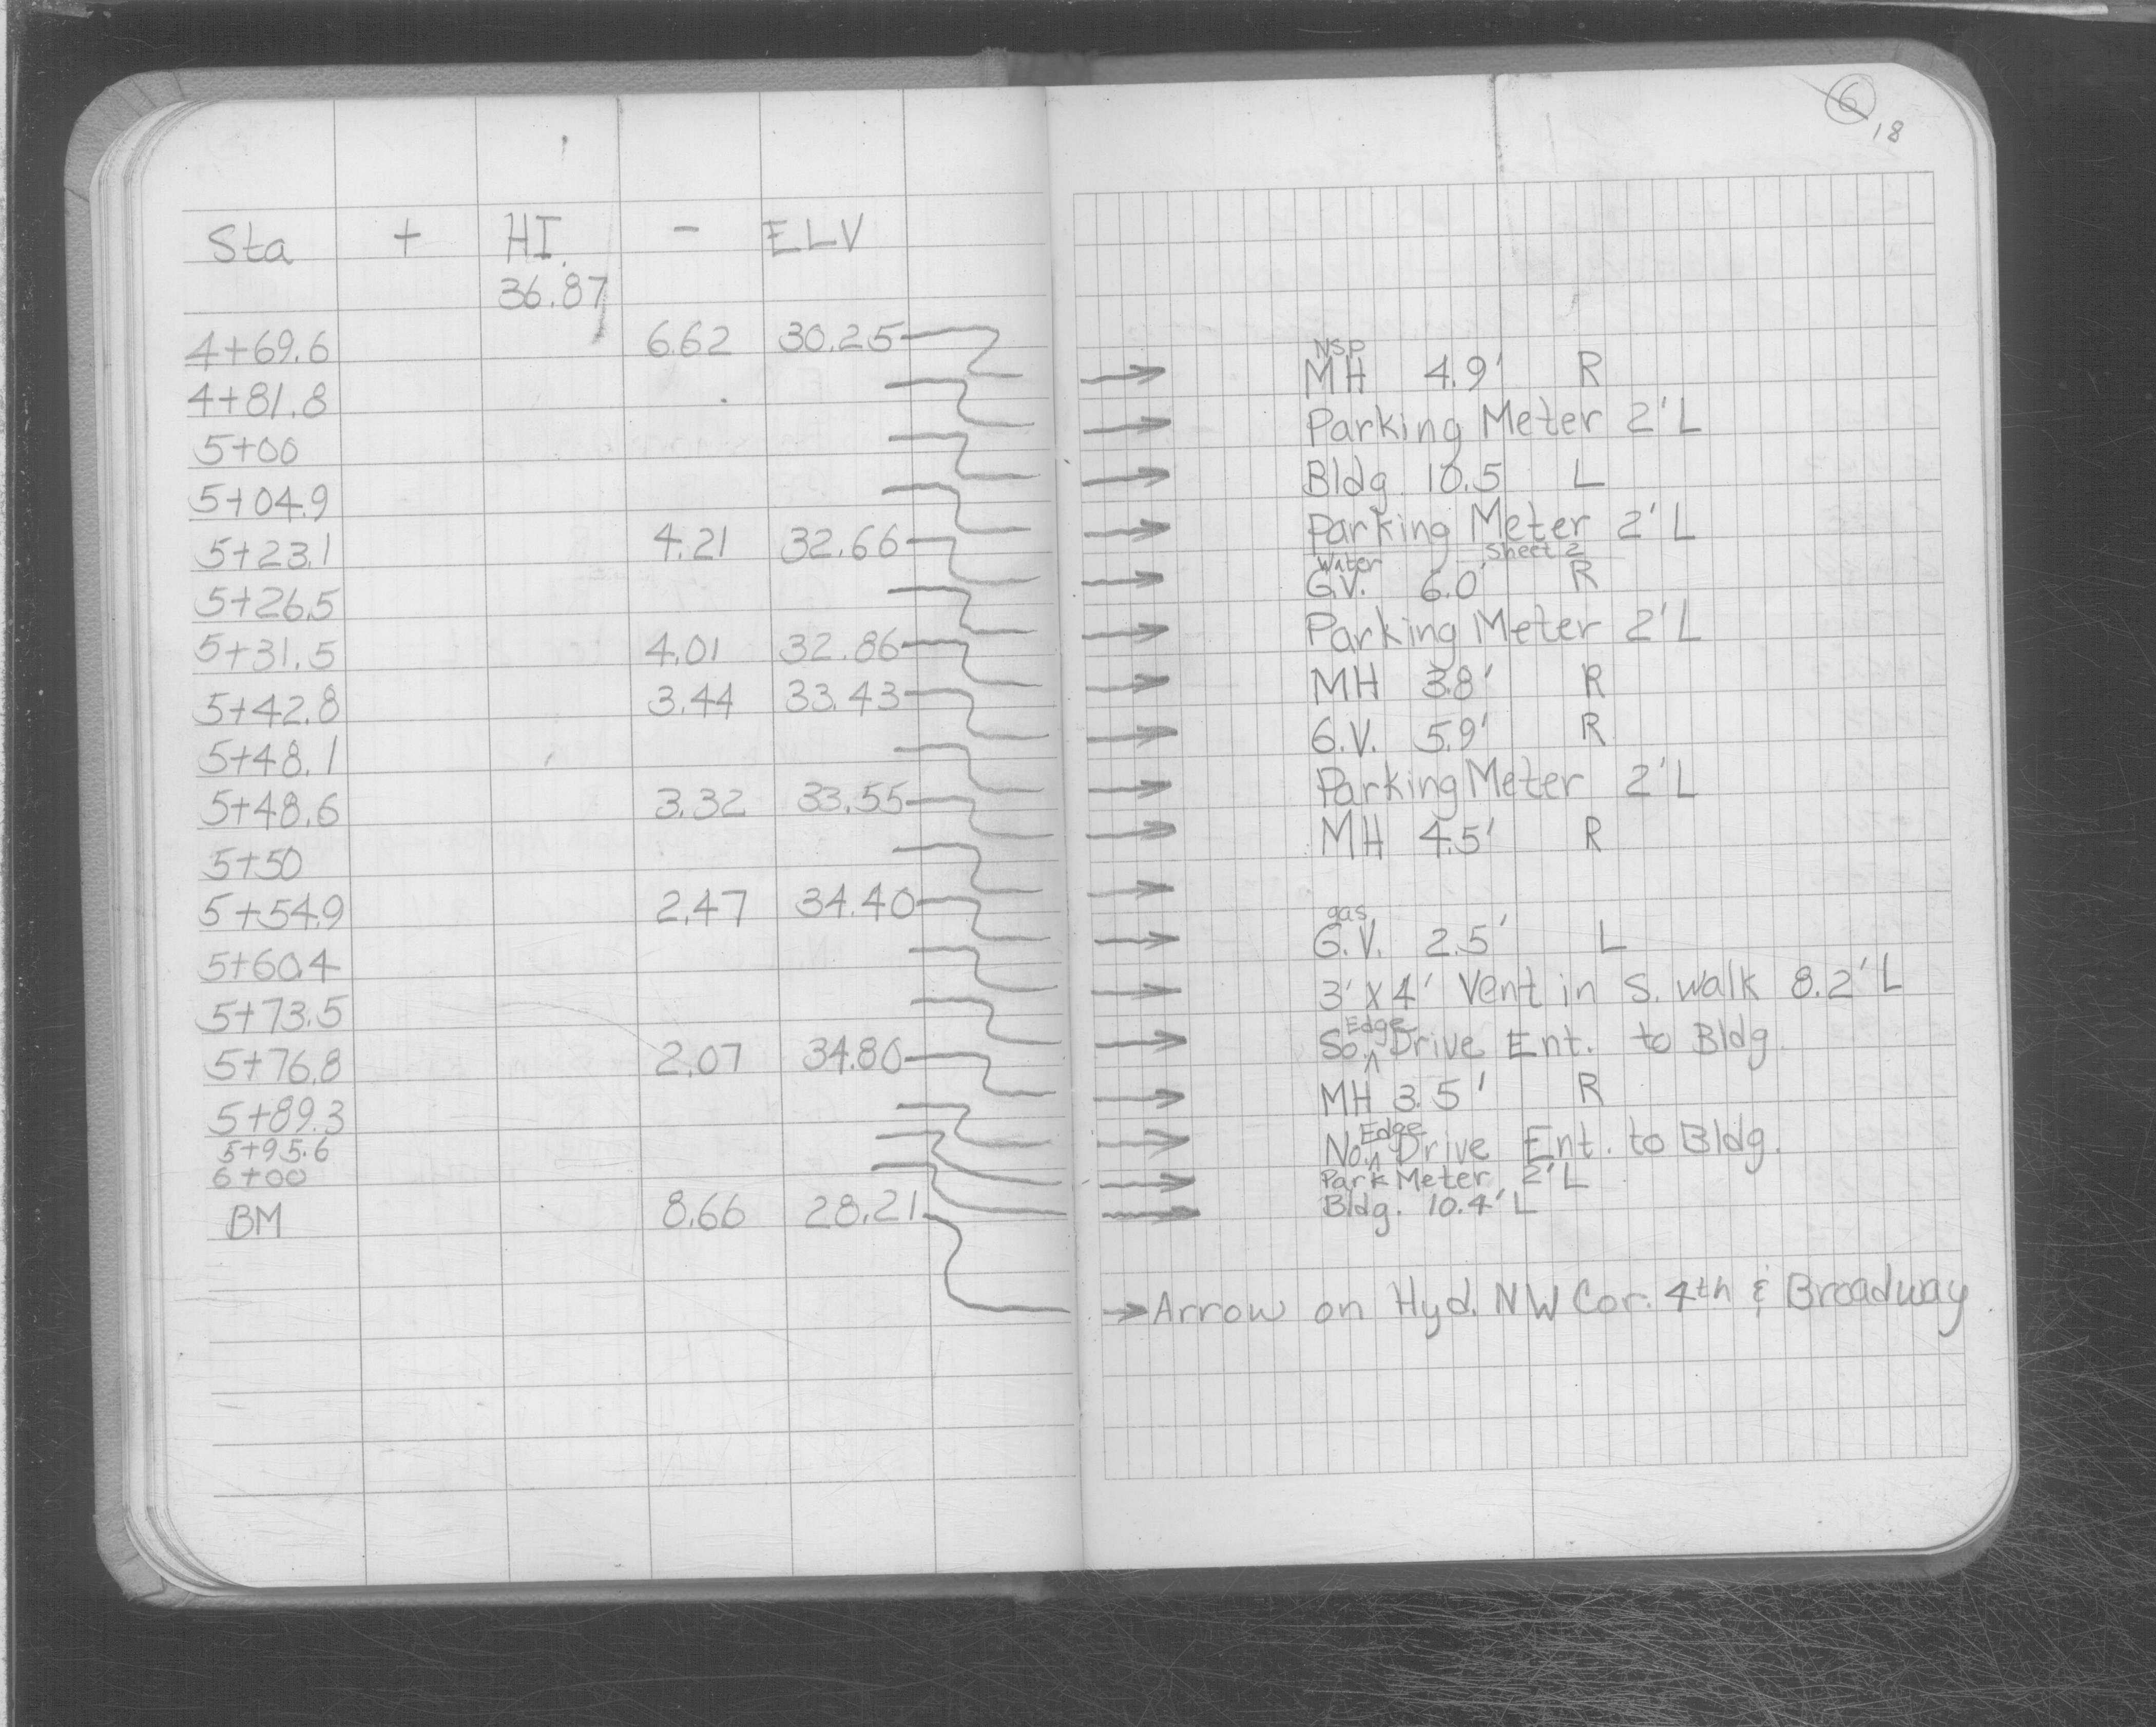 6
18
Sta + HI. - ELV
36.87
4+69.6 6.62 30.25 → NSP MH 4.9' R
4+81.8 → Parking Meter 2' L
5+00 → Bldg. 10.5 L
5+04.9 → Parking Meter 2' L
Sheet 2
5+23.1 4.21 32.66 → Water G.V. 6.0' R
5+26.5 → Parking Meter 2' L
5+31.5 4.01 32.86 → MH 3.8' R
5+42.8 3.44 33.43 → G.V. 5.9' R
5+48.1 → Parking Meter 2' L
5+48.6 3.32 33.55 → MH 4.5' R
5+50 →
5+54.9 2.47 34.40 → gas G.V. 2.5' L
5+60.4 → 3' X 4' Vent in S. walk 8.2' L
5+73.5 → So. Edge Drive Ent. to Bldg.
5+76.8 2.07 34.80 → MH 3.5' R
5+89.3 → No. Edge Drive Ent. to Bldg.
5+95.6 → Park Meter 2' L
6+00 → Bldg. 10.4' L
BM 8.66 28.21 → Arrow on Hyd. NW Cor. 4th & Broadway